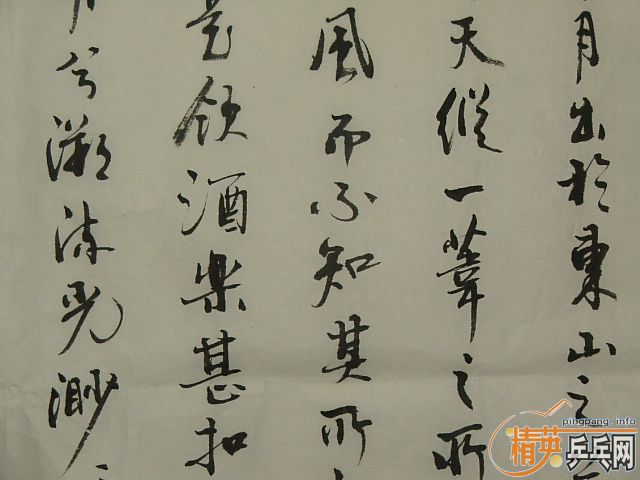 月出於東山之
天縱一葦之所
風而不知其所
是飲酒樂甚扣
兮溯流光渺
pingpang.info
精英乒乓网